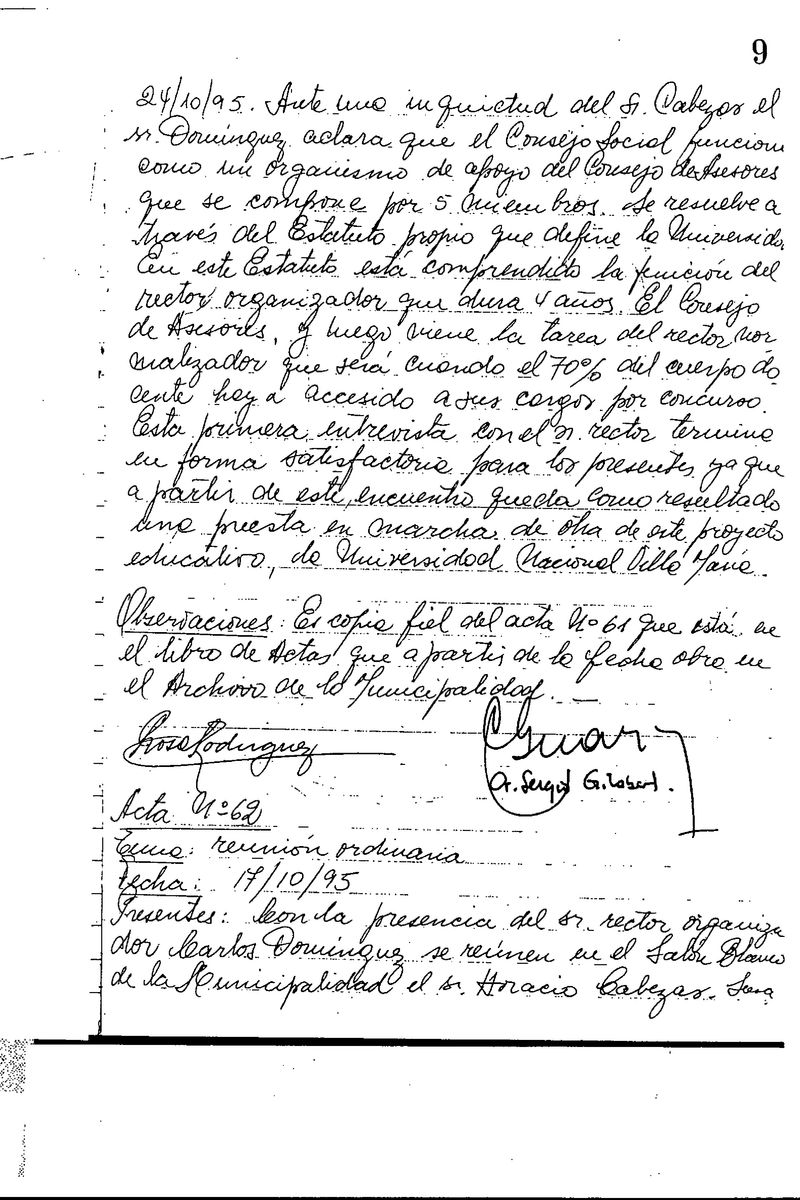 9
24/10/95. Ante una inquietud del Sr. Cabezas el
sr. Domínguez aclara que el Consejo Social funciona
como un organismo de apoyo del Consejo de Asesores
que se compone por 5 miembros. Se resuelve a
través del Estatuto propio que define la Universida
En este Estatuto está comprendido la función del
rector organizador que dura 4 años. El Consejo
de Asesores, y luego viene la tarea del rector nor
malizador que será cuando el 70% del cuerpo do
cente haya accesido a sus cargos por concurso.
Esta primera entrevista con el sr. rector termina
en forma satisfactoria para los presentes ya que
a partir de este encuentro queda como resultado
una puesta en marcha de otra de este proyecto
educativo, la Universidad Nacional Villa María.
Observaciones: Es copia fiel del acta Nº 61 que está en
el libro de Actas que a partir de la fecha obra en
el Archivo de la Municipalidad.
Rosa Rodriguez
Sergio
Acta Nº 62
Tema: reunión ordinaria
Fecha: 17/10/95
Presentes: Con la presencia del sr. rector organiza
dor Carlos Domínguez se reúnen en el Salón Blanco
de la Municipalidad el sr. Horacio Cabezas.